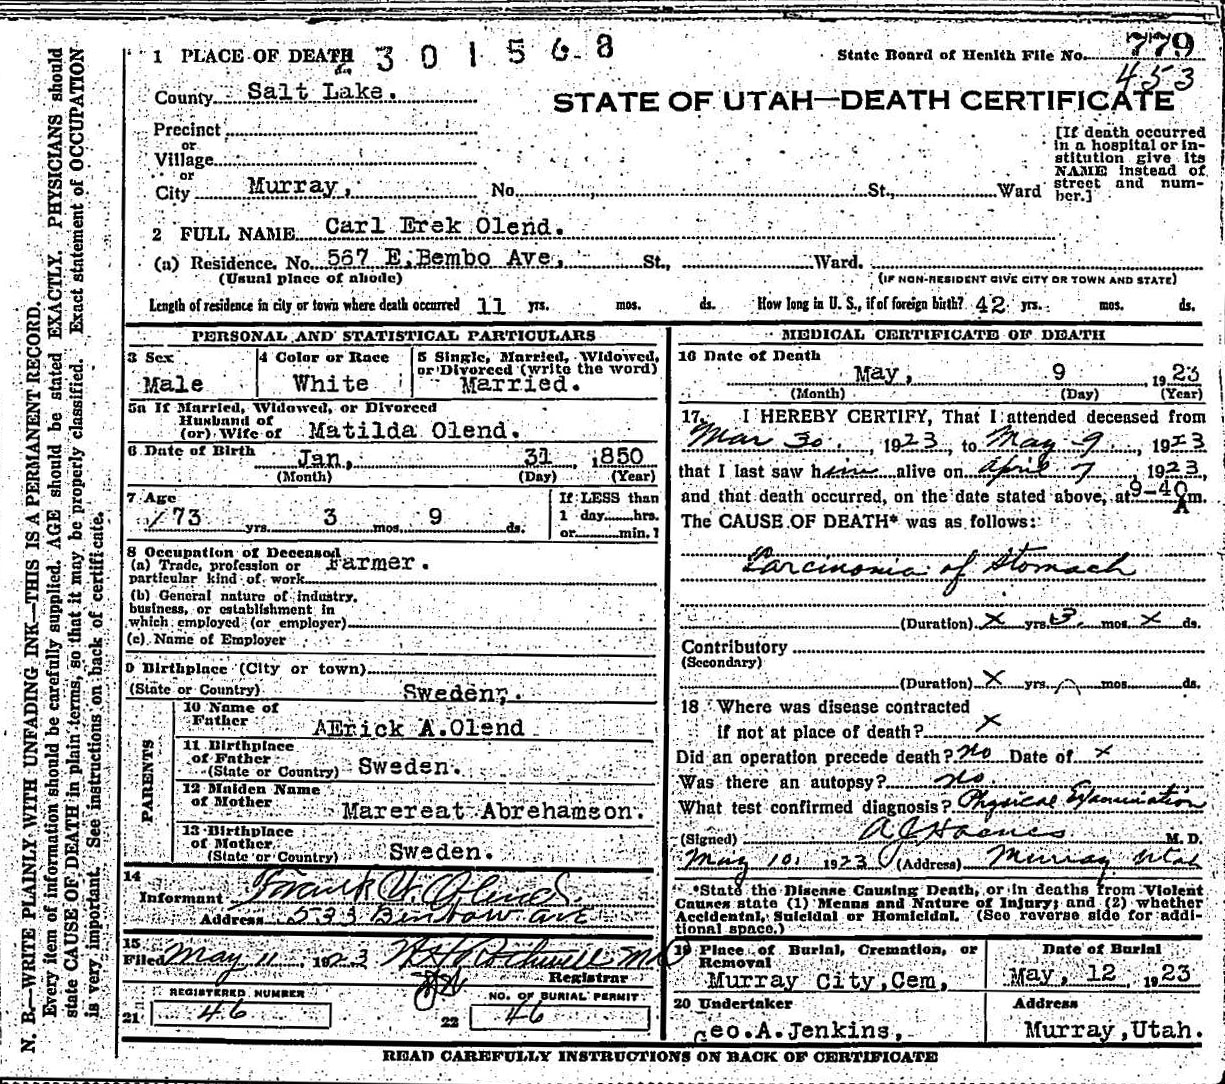 779
1 PLACE OF DEATH 301568 State Board of Health File No.
453
County Salt Lake.
STATE OF UTAH—DEATH CERTIFICATE
Precinct
or
Village
or
City Murray, No. St., Ward
[If death occurred
in a hospital or in-
stitution give its
NAME instead of
street and num-
ber.]
2 FULL NAME Carl Erek Olend.
(a) Residence. No. 567 E. Bembo Ave, St., Ward.
(Usual place of abode) (IF NON-RESIDENT GIVE CITY OR TOWN AND STATE)
Length of residence in city or town where death occurred 11 yrs. mos. ds. How long in U. S., if of foreign birth? 42 yrs. mos. ds.
PERSONAL AND STATISTICAL PARTICULARS
3 Sex
Male
4 Color or Race
White
5 Single, Married, Widowed,
or Divorced (write the word)
Married.
5a If Married, Widowed, or Divorced
Husband of
(or) Wife of Matilda Olend.
6 Date of Birth Jan, 31, 1850
(Month) (Day) (Year)
7 Age
73 yrs. 3 mos. 9 ds.
If LESS than
1 day......hrs.
or..........min.
8 Occupation of Deceased
(a) Trade, profession or
particular kind of work Farmer.
(b) General nature of industry,
business, or establishment in
which employed (or employer)
(c) Name of Employer
9 Birthplace (City or town)
(State or Country) Sweden,.
PARENTS
10 Name of
Father AErick A.Olend
11 Birthplace
of Father
(State or Country) Sweden.
12 Maiden Name
of Mother Marereat Abrehamson.
13 Birthplace
of Mother
(State or Country) Sweden.
14
Informant Frank W. Olend.
Address 533 Binbow ave
15
Filed May 11, 1923
Registrar
REGISTERED NUMBER
21 46
NO. OF BURIAL PERMIT
22 46
MEDICAL CERTIFICATE OF DEATH
16 Date of Death
May, 9, 1923
(Month) (Day) (Year)
17. I HEREBY CERTIFY, That I attended deceased from
Mar 30., 1923, to May 9., 1923
that I last saw him alive on April 7, 1923,
and that death occurred, on the date stated above, at 9-40 A m.
The CAUSE OF DEATH* was as follows:
Carcinonia of Stomach
(Duration) X yrs. 3. mos. X ds.
Contributory
(Secondary)
(Duration) X yrs. mos. ds.
18 Where was disease contracted
if not at place of death? X
Did an operation precede death? no Date of X
Was there an autopsy? no.
What test confirmed diagnosis? Physical Examination
(Signed) M. D.
May 10, 1923 (Address) Murray Utah
*State the Disease Causing Death, or in deaths from Violent
Causes state (1) Means and Nature of Injury; and (2) whether
Accidental, Suicidal or Homicidal. (See reverse side for addi-
tional space.)
19 Place of Burial, Cremation, or
Removal
Murray City,Cem,
Date of Burial
May, 12, 1923
20 Undertaker
Geo.A.Jenkins,
Address
Murray,Utah.
READ CAREFULLY INSTRUCTIONS ON BACK OF CERTIFICATE
N. B.—WRITE PLAINLY WITH UNFADING INK—THIS IS A PERMANENT RECORD.
Every item of information should be carefully supplied. AGE should be stated EXACTLY. PHYSICIANS should
state CAUSE OF DEATH in plain terms, so that it may be properly classified. Exact statement of OCCUPATION
is very important. See instructions on back of certificate.